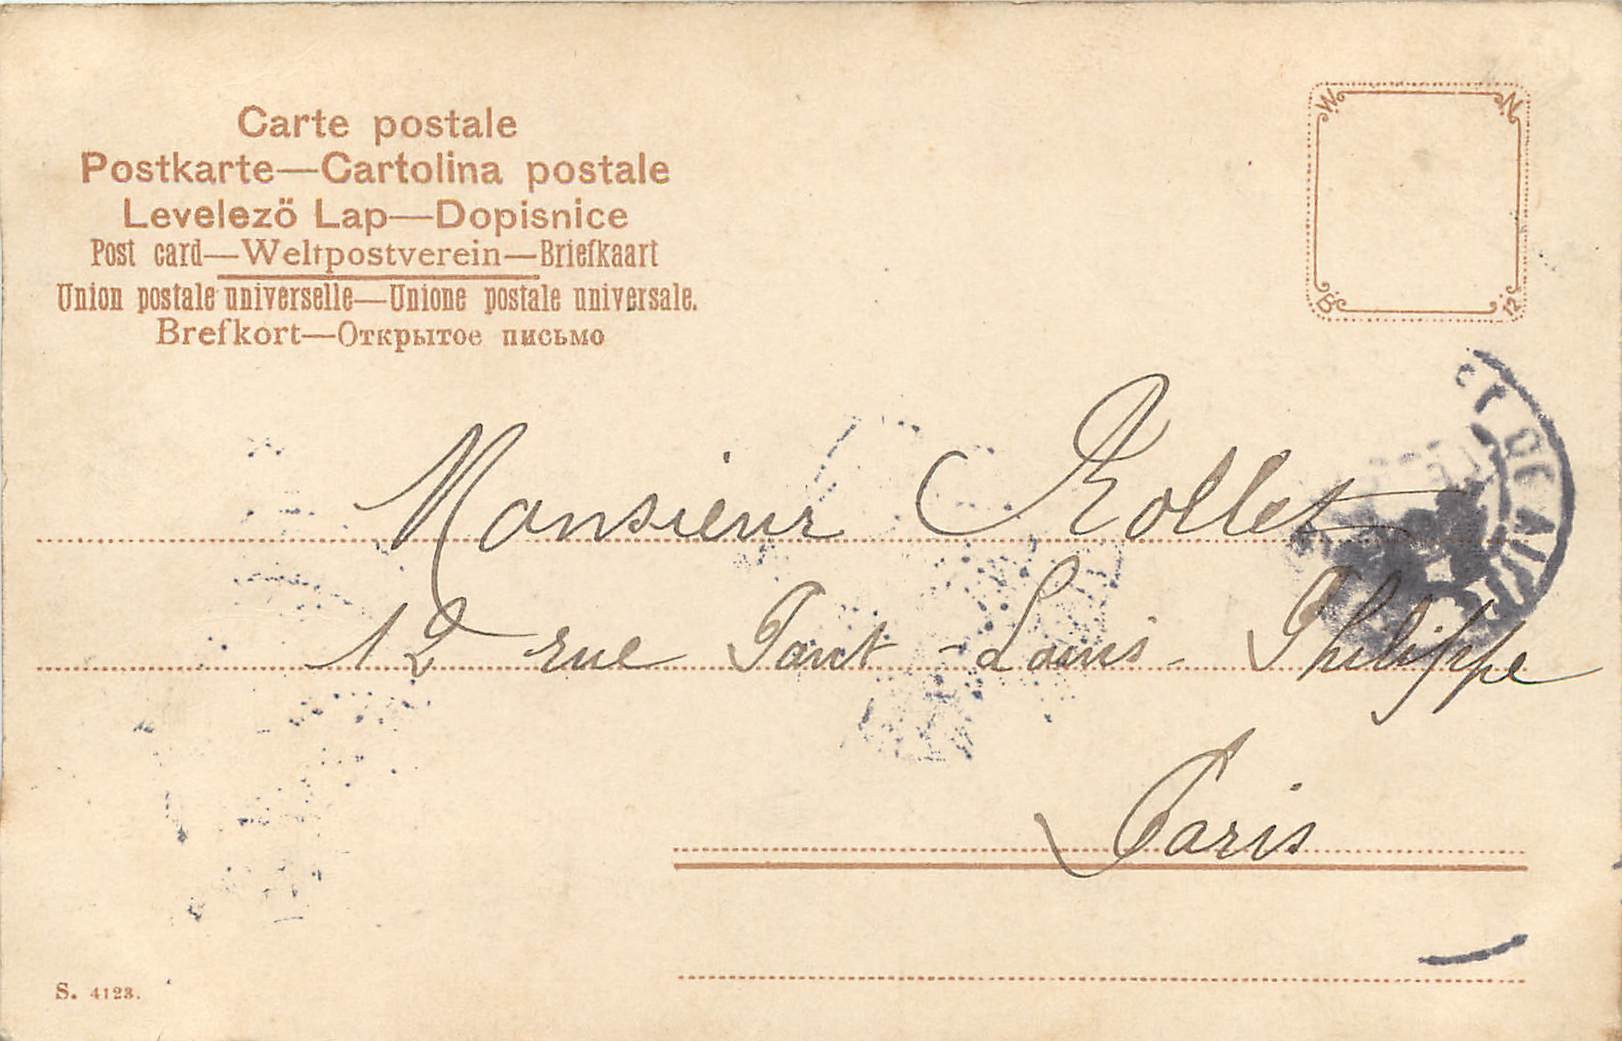 Carte postale
Postkarte—Cartolina postale
Levelező Lap—Dopisnice
Post card—Weltpostverein—Briefkaart
Union postale universelle—Unione postale universale.
Brefkort—Открытое письмо
W. N.
B. 12
Monsieur Rollet
12 rue Pont-Louis-Philippe
Paris
S. 4123.